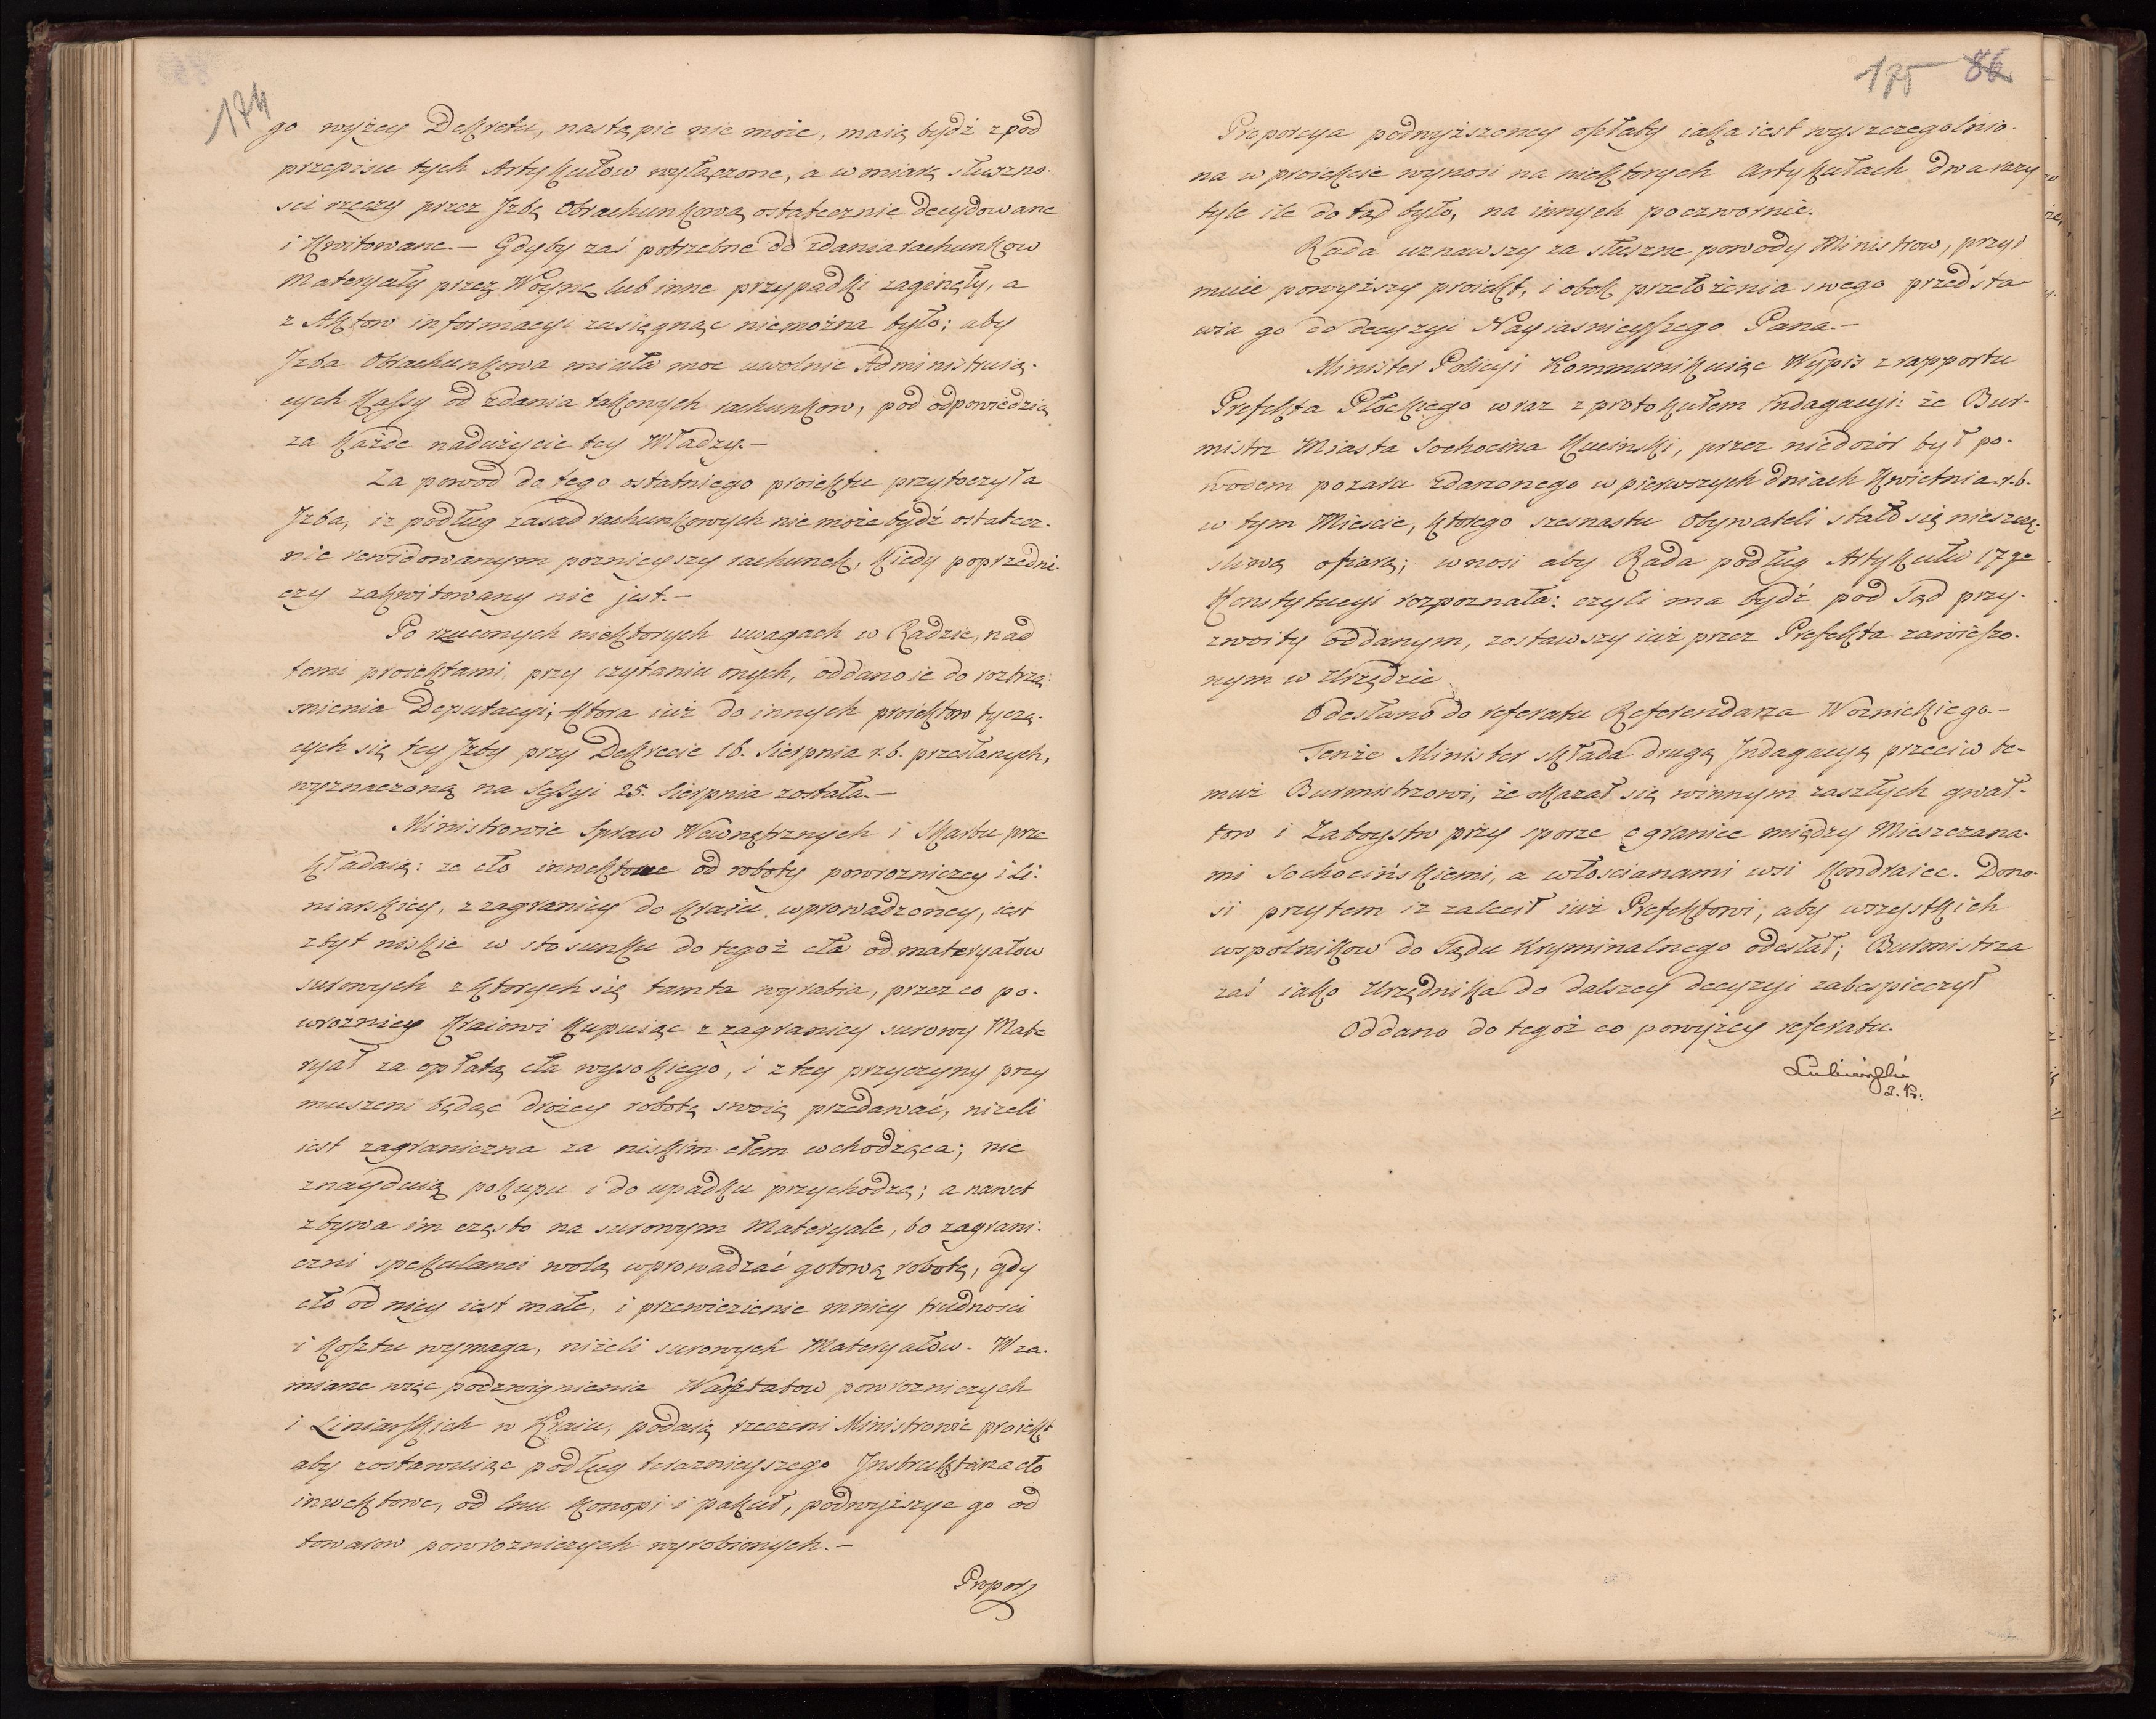 174
go wyżey Dekretu, nastąpic nie może, maią bydź z pod
przepisu tych Artykułow wyłączone, a w miarę słuszno-
sci rzeczy przez Jzbę Obrachunkową ostatecznie decydowane
i kwitowane.— Gdyby zaś potrzebne do zdania rachunkow
Materyały przez Woynę lub inne przypadki zaginęły, a
z Aktow informacyi zasięgnąc niemożna było; aby
Jzba Obrachunkowa miała moc uwolnic Administruią-
cych Kassy od zdania takowych rachunkow, pod odpowiedzią
za każde nadużycie tey Władzy.—
Za powod do tego ostatniego proiektu przytoczyła
Jzba, iz podług zasad rachunkowych nie może bydź ostatecz-
nie rewidowanym poznieyszy rachunek, kiedy poprzedni-
czy zakwitowany nie jest.—
Po rzuconych niektorych uwagach w Radzie, nad
temi proiektami, przy czytaniu onych, oddano ie do roztrzą-
snienia Deputacyi, ktora iuż do innych proiektow tyczą-
cych się tey Jzby przy Dekrecie 16. Sierpnia r.b. przesłanych,
wyznaczoną na Sessyi 25. Sierpnia została.—
Ministrowie Spraw Wewnętrznych i Skarbu prze
kładaią: ze cło inwektowe od roboty powrozniczey i Li-
niarskiey, z zagranicy do kraiu wprowadzoney, iest
zbyt niskie w stosunku do tegoż cła od materyałow
surowych z ktorych się tamta wyrabia, przez co po-
wroznicy Kraiowi kupuiąc z zagranicy surowy Mate
ryał za opłatą cła wysokiego, i z tey przyczyny przy
muszeni będąc drożey robotę swoią przedawać, nizeli
iest zagraniczna za niskim cłem wchodząca; nie
znayduią pokupu i do upadku przychodzą; a nawet
zbywa im często na surowym Materyale, bo zagrani-
czni spekulanci wolą wprowadzać gotową robotę, gdy
cło od niey iest małe, i przewiezienie mniey trudnosci
i kosztu wymaga, niżeli surowych Materyałow. W za-
miarze więc podzwignienia Warsztatow powrozniczych
i Liniarskich w Kraiu, podaią rzeczeni Ministrowie proiekt
aby zostawuiąc podług terazniejszego Jnstruktarza cło
inwektowe, od lnu konopi i pakuł, podwyższyc go od
towarow powrozniczych wyrobionych.—
Propor
175 86
Proporcya podwyższoney opłaty iaka iest wyszczegolnio-
na w proiekcie wynosi na niektorych Artykułach dwa razy
tyle ile do tąd było, na innych poczwornie.
Rada uznawszy za słuszne powody Ministrow, przyi
muie powyższy proiekt, i obok przełożenia swego przedsta-
wia go do decyzyi Nayiasnieyszego Pana.—
Minister Policyi Kommunikuiąc Wypis z rapportu
Prefekta Płockiego wraz z protokułem indagacyi: że Bur-
mistrz Miasta Sochocina Kucinski, przez niedozór był po-
wodem pozaru zdarzonego w pierwszych dniach Kwietnia r.b.
w tym Miescie, ktorego szesnastu Obywateli stało się nieszczę-
sliwą ofiarą; wnosi aby Rada podług Artykułu 17go
Konstytucyi rozpoznała: czyli ma bydź pod Sąd przy-
zwoity oddanym, zostawszy iuż przez Prefekta zawieszo-
nym w Urzędzie
Odesłano do referatu Referendarza Woznickiego.—
Tenże Minister składa drugą Jndagacyą przeciw te-
muż Burmistrzowi, że okazał się winnym zaszłych gwał-
tow i Zaboystw przy sporze o granice między Mieszczana-
mi Sochocińskiemi, a włościanami wsi Kondraiec. Dono-
si przytem iz zalecił iuż Prefektowi, aby wszystkich
wspolnikow do Sądu Kryminalnego odesłał; Burmistrza
zaś iako Urzędnika do dalszey decyzyi zabespieczył
Oddano do tegoż co powyżey referatu.
Lubieński